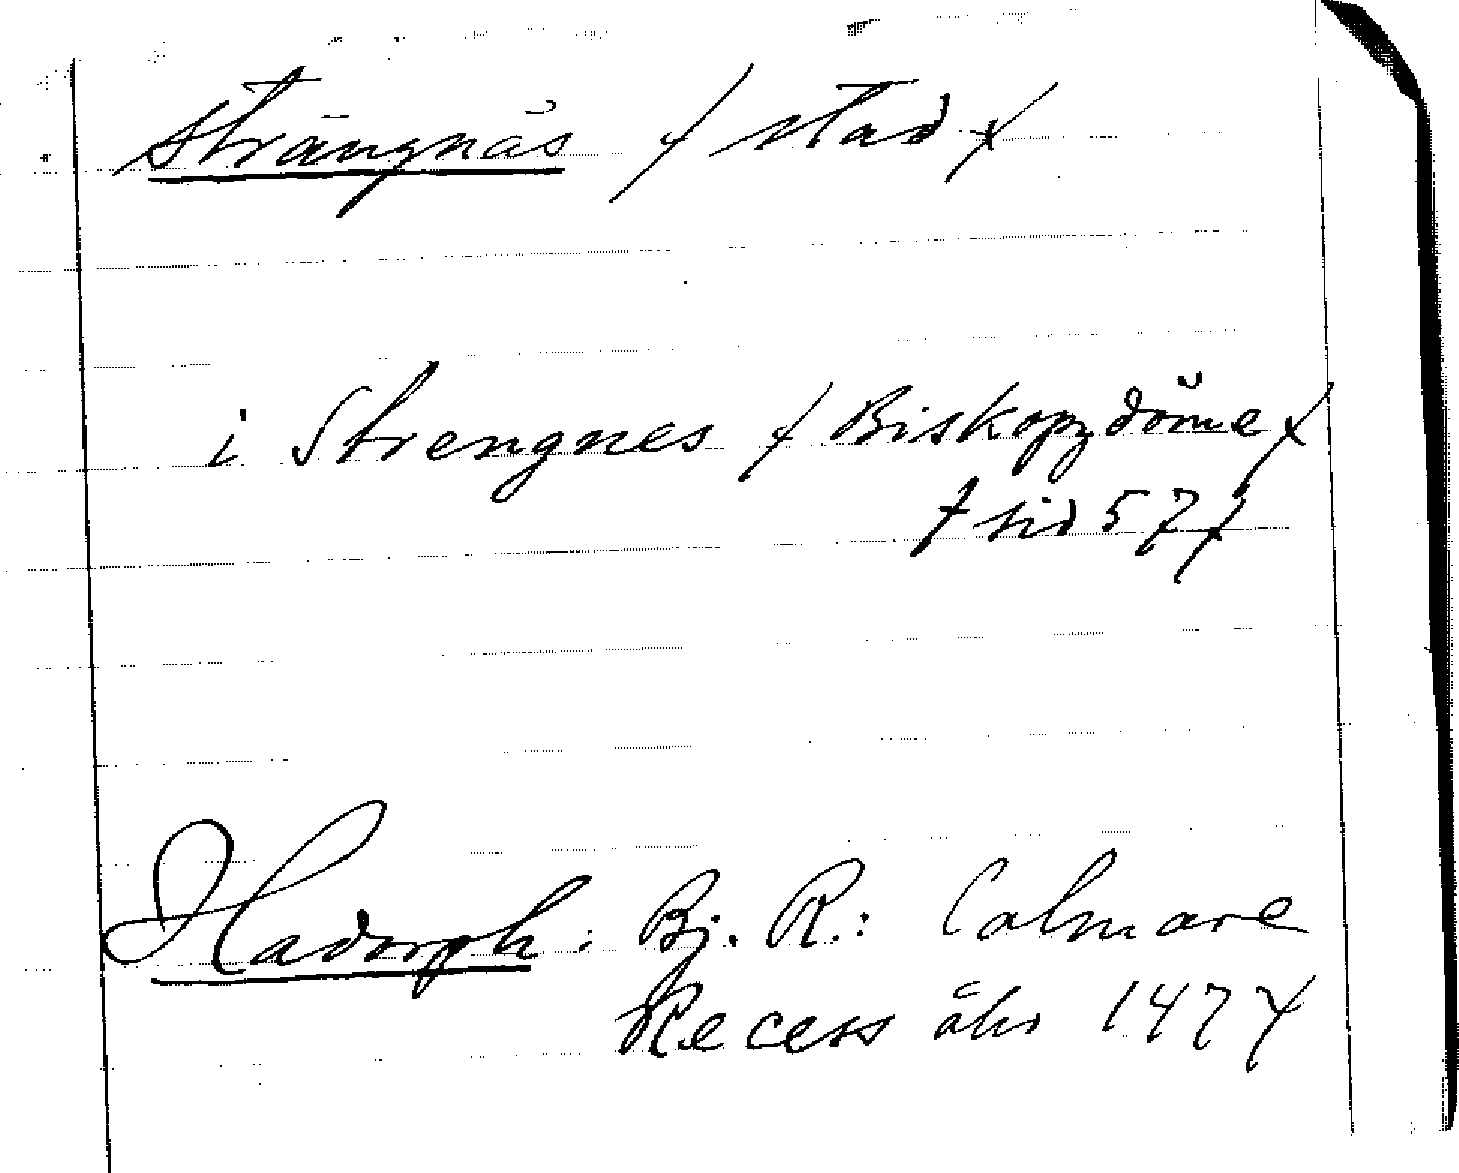 Strängnäs / stad /
i Strengnes / Biskopzdöme /
/ sid 57 /
Hadorph: Bj. R: Calmare
Recess åhr 1474